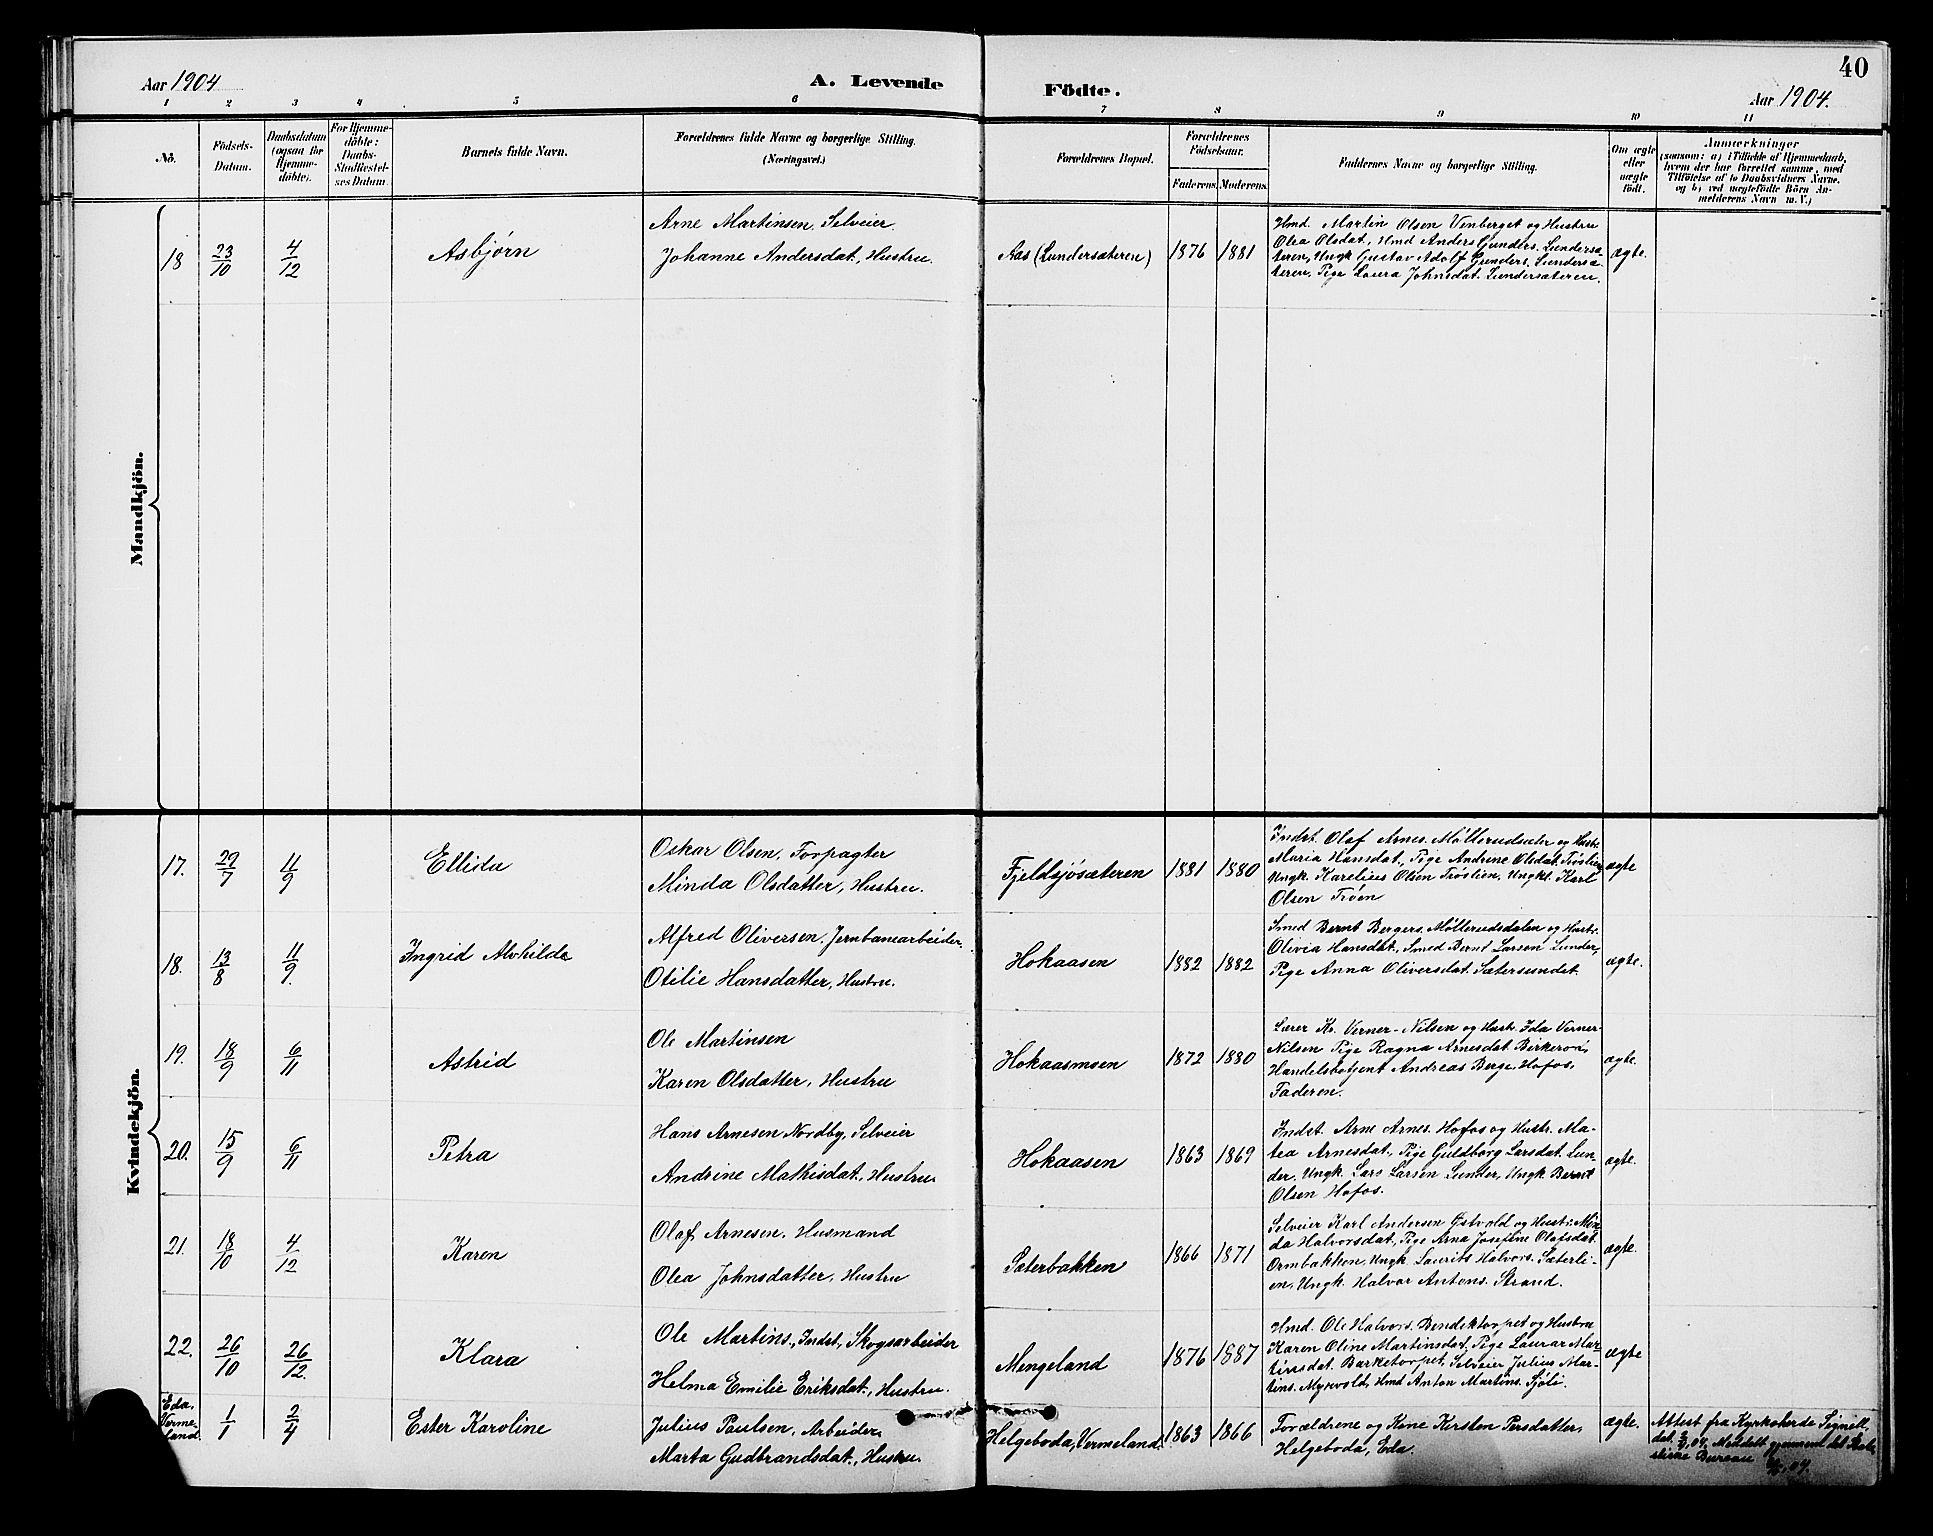 40
Aar 1904
A. Levende
Födte.
Aar 1904.
1 2 3 4 5 6 7 8 9 10 11
No.
Födsels-
Datum.
Daabsdatum
(ogsaa for
Hjemme-
döbte).
For Hjemme-
döbte:
Daabs-
Stadfæstel-
ses Datum.
Barnets fulde Navn.
Forældrenes fulde Navne og borgerlige Stilling.
(Næringsvei.)
Forældrenes Bopæl.
Forældrenes
Födselsaar.
Faderens. Moderens.
Faddernes Navne og borgerlige Stilling.
Om ægte
eller
uægte
födt.
Anmærkninger
(saasom: a) i Tilfælde af Hjemmedaab,
hvem der har forrettet samme, med
Tilföielse af to Daabsvidners Navne,
og b) ved uægtefödte Börn An-
melderens Navn m. V.)
Mandkjön.
18
23/10
4/12
Asbjørn
Arne Martinsen, Selveier
Johanne Andersdat., Hustru.
Aas (Lundersæteren)
1876
1881
Hmd. Martin Olsen Venberget og Hustru
Olea Olsdat., Hmd Anders Gunders. Lundersæ-
teren, Ungk Gustav Adolf Gunders. Lundersæ-
teren, Pige Laura Johnsdat. Lundersæteren.
ægte.
Kvindekjön.
17.
27/7
11/9
Ellida
Oskar Olsen, Forpagter
Minda Olsdatter, Hustru.
Fjeldsjøsæteren
1881
1880
Indst. Olaf Arnes. Møllerudsæter og Hustr.
Maria Hansdat, Pige Andrine Olsdat. Trøslien,
Ungk. Karelius Olsen Trøslien, Ungkl. Karl
Olsen Trøen
ægte
18.
13/8
11/9.
Ingrid Alvhilde
Alfred Oliversen, Jernbanearbeider.
Otilie Hansdatter, Hustru.
Hokaasen
1882
1882
Smed Bernt Bergers. Møllerudsdalen og Hustr.
Olivia Hansdat., Smed Bernt Larsen Lunder,
Pige Anna Oliversdat. Sætersundet.
ægte.
19.
18/9
6/11
Astrid
Ole Martinsen
Karen Olsdatter, Hustru
Hokaasmoen
1872
1880
Lærer Kr. Verner-Nilsen og Hustr. Ida Verner-
Nilsen Pige Ragna Arnesdat. Birkeroa,
Handelsbetjent Andreas Berge, Hofos,
Faderen.
ægte.
20.
15/9
6/11
Petra
Hans Arnesen Nordby, Selveier
Andrine Mathisdat., Hustru.
Hokaasen
1863
1869
Indst. Arne Arnes. Hofos og Hustr. Ma-
tea Arnesdat., Pige Guldborg Larsdat. Lun-
der, Ungk. Lars Larsen Lunder, Ungk Bernt
Olsen Hofos.
ægte.
21.
18/10
4/12
Karen
Olaf Arnesen, Husmand
Olea Johnsdatter, Hustru
Sæterbakken
1866
1871
Selveier Karl Andersen Østvold og Hustr. Min-
da Halvorsdat., Pige Arna Josefine Olafsdat.
Ormbakken, Ungk. Laurits Halvors. Sæterli-
en, Ungk. Halvor Antons. Strand.
ægte.
22.
26/10
26/12.
Klara
Ole Martins., Indst., Skogsarbeider
Helma Emilie Eriksdat., Hustru.
Mengeland
1876
1887
Hmd. Ole Halvors. Bendiktorpet og Hustru
Karen Oline Martinsdat., Pige Laura Mar-
tinsdat. Barketorpet, Selveier Julius Mar-
tins. Myrvold, Hmd Anton Martins. Sjøli.
ægte
Eda,
Verme-
land.
1/1
2/4
Ester Karoline
Julius Paulsen, Arbeider
Marta Gudbrandsdat., Hustru.
Helgeboda, Vermeland.
1863
1866
Forældrene og Kone Kirsten Persdatter,
Helgeboda, Eda.
ægte.
Attest fra Kyrkoherde Signell,
dat. 04. Meddelt gjennem det Stati-
stiske Bureau 04.